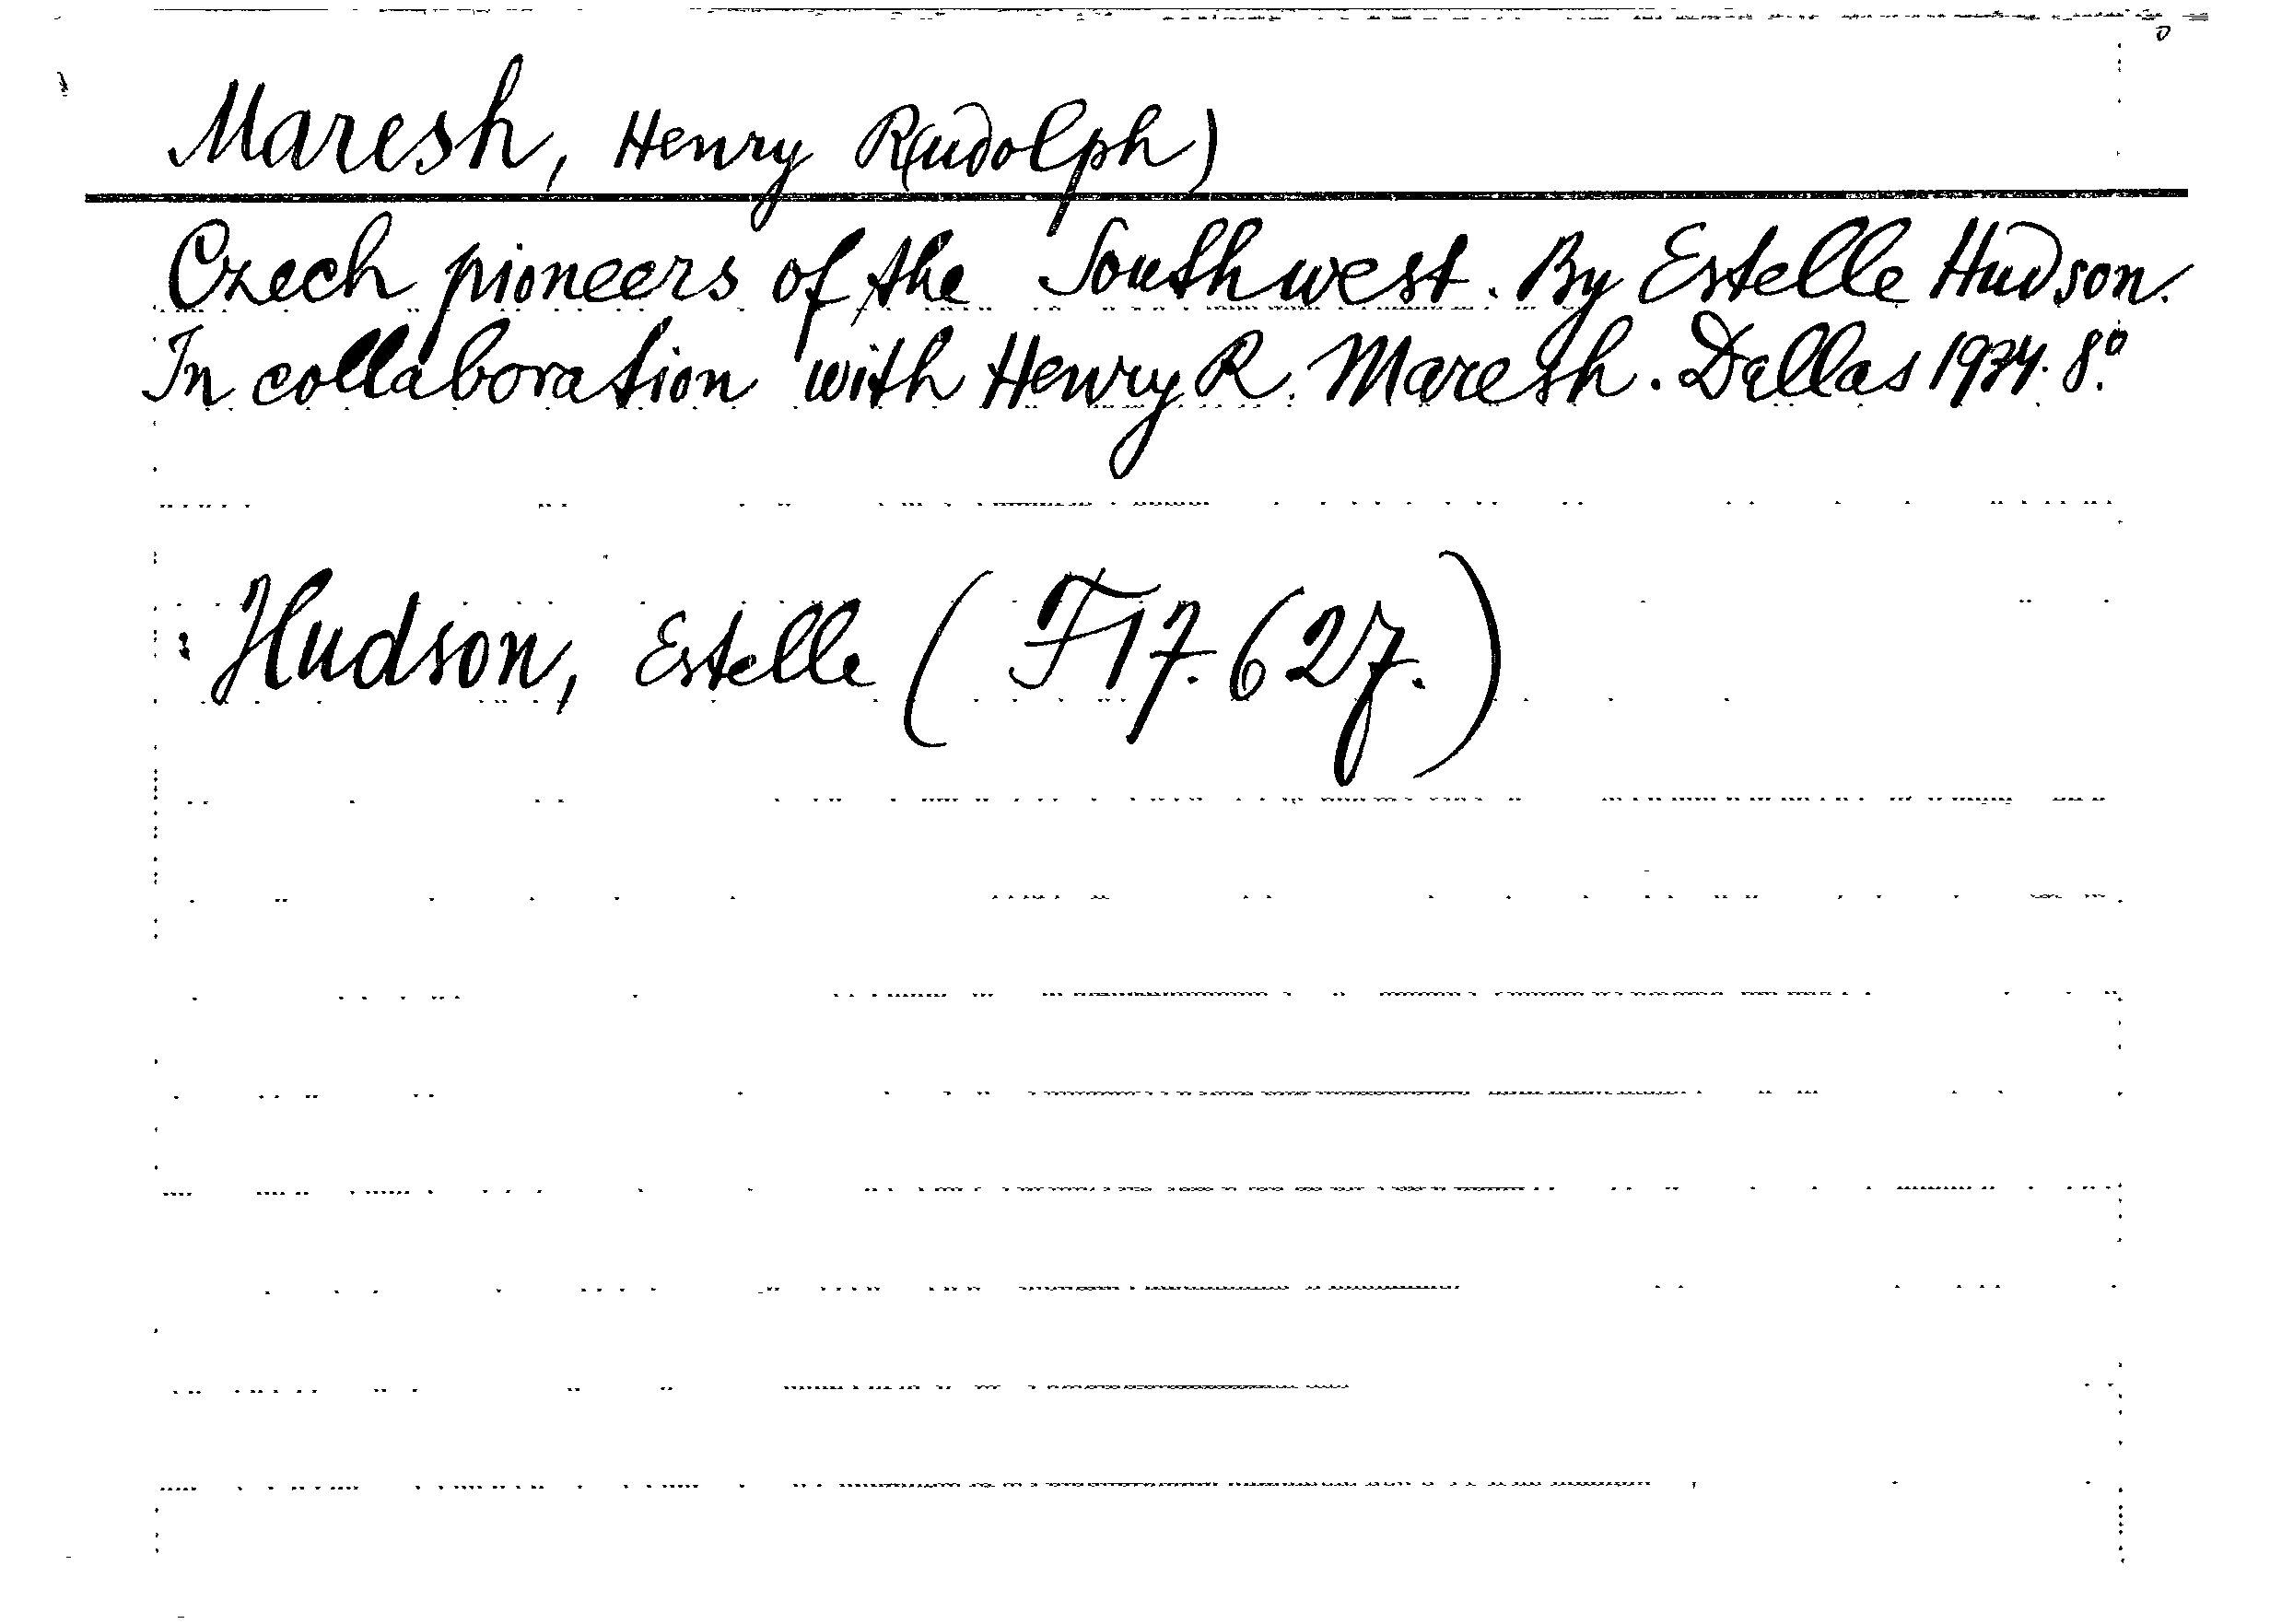 Maresh, Henry R(udolph)
Czech pioneers of the Southwest. By Estelle Hudson.
In collaboration with Henry R. Maresh. Dallas 1934. 8°.
: Hudson, Estelle (F17.627.)